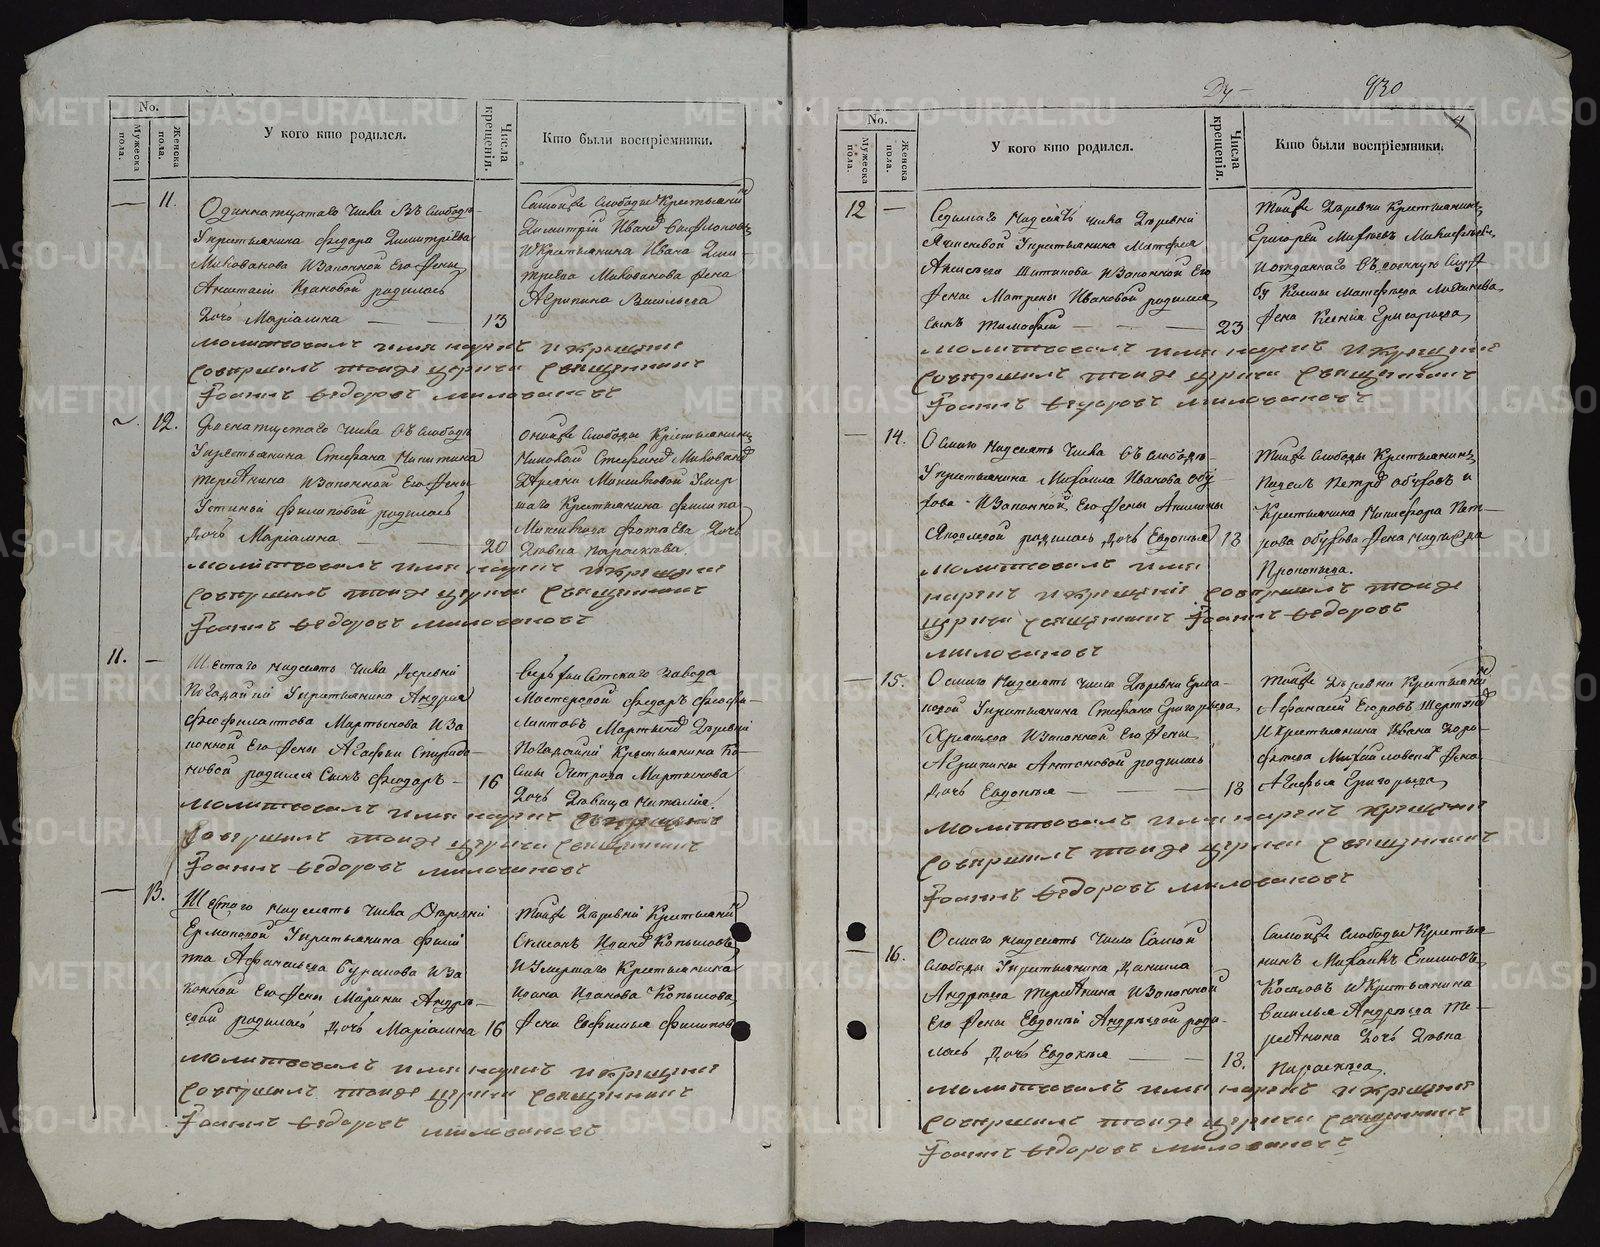 No.
Мужеска пола.
Женска пола.
У кого кто родился.
Числа крещенія.
Кто были воспріемники.
11.
Одиннатцатаго числа въ слободѣ
Укрестьянина Федора Димитріева
Милованова Изаконной Его Жены
Анастасіи Ивановой родилась
Дочь Маріамна
13
Самойже слободы Крестьянинъ
Димитрій Ивановъ
Икрестьянина Ивана Дми-
тріева Милованова жена
Агрипина Васильева
молитвовалъ имя нарекъ икрещеніе
совершилъ тойже церкви священникъ
Іоаннъ Ѳедоровъ Миловановъ
12.
числа въ слободѣ
Укрестьянина Стефана Никитина
Теребѣнина Изаконной Его Жены
Устиньи Филиповой родилась
Дочь Маріамна
20
онойже слободы Крестьянинъ
Николай Стефановъ Миловановъ
Деревни Макаровой Умер-
шаго Крестьянина Филипа
Дочь
Дѣвка Параскева.
молитвовалъ имя нарекъ икрещеніе
совершилъ тойже церкви священникъ
Іоаннъ Ѳедоровъ Миловановъ
11.
Шестаго надесять числа Деревни
Погадайки Укрестьянина Андрея
Феофилактова Мартынова Иза-
конной Его Жены Агафьи Спиридо-
новой родился Сынъ Феодоръ
16
завода
Мастеровой Федоръ Феофи-
лактовъ Мартыновъ Деревни
Погадайки Крестьянина Ко-
смы Петрова Мартынова
Дочь Дѣвица Наталія.
молитвовалъ имя нарекъ
совершилъ тойже церкви священникъ
Іоаннъ Ѳедоровъ Миловановъ
13.
Шестого надесять числа Деревни
Ермаковой Укрестьянина Фили-
ппа Афанасьева Буркова Иза-
конной Его Жены Марины Андре-
евой родилась дочь Маріамна
16
Тойже Деревни Крестьянинъ
Симеонъ Ивановъ Копыловъ
И Умершаго Крестьянина
Ивана Иванова Копылова
Жена Евфимья Филипов
молитвовалъ имя нарекъ икрещеніе
совершилъ тойже церкви священникъ
Іоаннъ Ѳедоровъ Миловановъ
830
4
No.
Мужеска пола.
Женска пола.
У кого кто родился.
Числа крещенія.
Кто были воспріемники.
12
Седмаго надесять числа Деревни
Укрестьянина Матфея
Алексѣева Шитикова Изаконной Его
Жены Матрены Ивановой родился
Сынъ Тимофей
23
Тойже Деревни Крестьянинъ
Григорей
Иотданнаго въ военную служ-
бу Космы Матфеева
Жена Ксенія Григорьева
молитвовалъ имя нарекъ икрещеніе
совершилъ тойже церкви священникъ
Іоаннъ Ѳедоровъ Миловановъ
14.
Осмаго надесять числа въ слободѣ
Укрестьянина Михаила Иванова Обу-
хова Изаконной Его Жены Акилины
Яковлевой родилась дочь Евдокья
18
Тойже слободы Крестьянинъ
Павелъ Петровъ Обуховъ и
Крестьянина Никифора Пет-
рова Обухова Жена Надежда
Прокопьева.
молитвовалъ имя
нарекъ икрещеніе совершилъ тойже
церкви священникъ Іоаннъ Ѳедоровъ
Миловановъ
15.
Осмаго надесять числа Деревни Ерма-
ковой Укрестьянина Стефана Григорьева
Изаконной Его Жены
Агрипины Антоновой родилась
Дочь Евдокья
18
Тойже Деревни Крестьянинъ
Афанасей Егоровъ
Икрестьянина Ивана Доро-
феева Жена
Агафья Григорьева
молитвовалъ имя нарекъ крещеніе
совершилъ тойже церкви священникъ
Іоаннъ Ѳедоровъ Миловановъ
16.
Осмаго надесять числа Самой
Слободы Укрестьянина Данила
Андреева Теребѣнина Изаконной
Его Жены Евдокьи Андреевой роди-
лась Дочь Евдокья
18.
Самойже слободы Крестья-
нинъ Михаилъ Екимовъ
Косаговъ Икрестьянина
Василья Андреева Те-
ребѣнина Дочь Дѣвка
Параскева.
молитвовалъ имя нарекъ икрещеніе
совершилъ тойже церкви священникъ
Іоаннъ Ѳедоровъ Миловановъ
METRIKI.GASO-URAL.RU